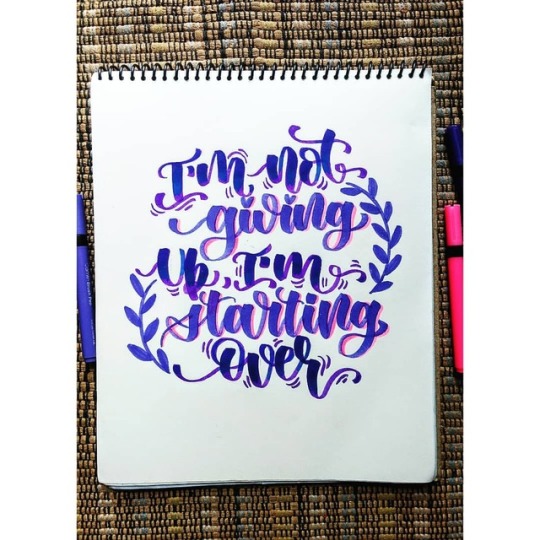 I'm not
giving
Up, I'm
starting
over